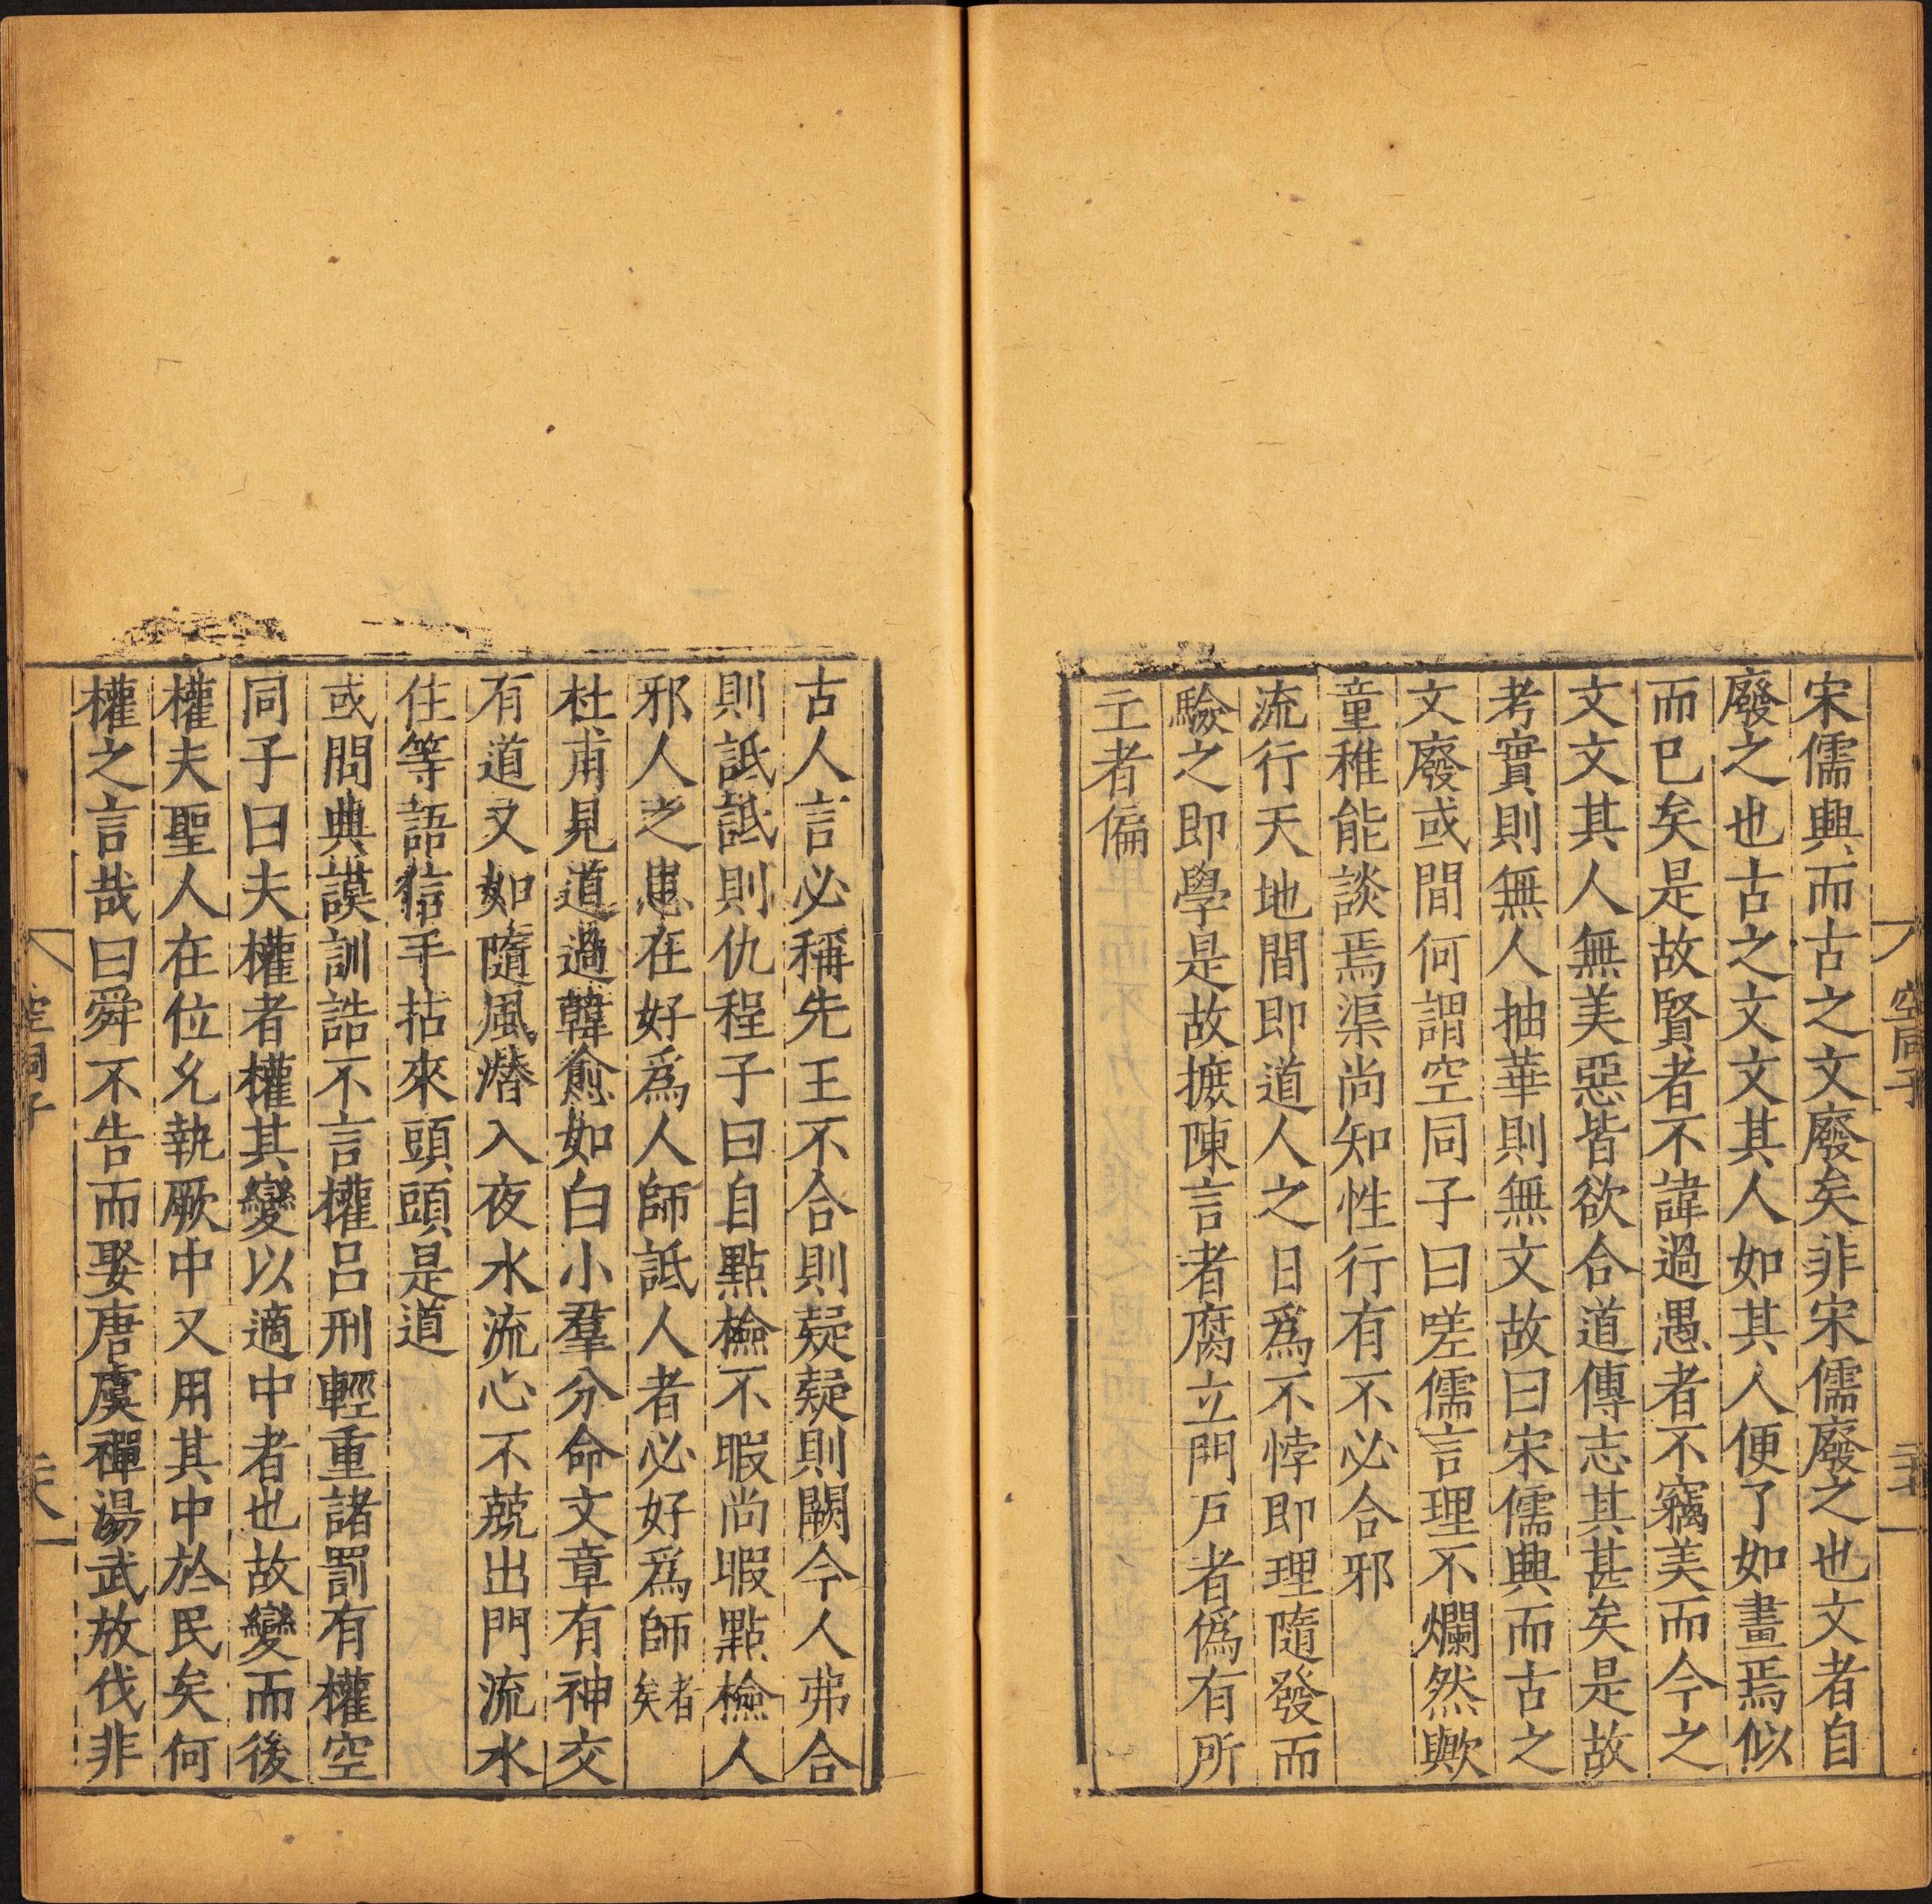 宋儒興而古之文廢矣非宋儒廢之也文者自
廢之也古之文文其人如其人便了如畫焉似
而已矣是故賢者不諱過愚者不竊美而今之
文文其人無美惡皆欲合道傳志其甚矣是故
考實則無人抽華則無文故曰宋儒興而古之
文廢或問何謂空同子曰嗟儒言理不爛然歟
童稚能談焉渠尚知性行有不必合邪
流行天地間即道人之日為不悖即理隨發而
驗之即學是故摭陳言者腐立門戶者僞有所
主者偏
空同子
二十七
古人言必稱先王不合則疑疑則闕今人弗合
則詆詆則仇程子曰自點檢不暇尚暇點檢人
邪人之患在好爲人師詆人者必好爲師者矣
杜甫見道過韓愈如白小羣分命文章有神交
有道又如隨風潛入夜水流心不競出門流水
住等語信手拈來頭頭是道
或問典謨訓誥不言權呂刑輕重諸罰有權空
同子曰夫權者權其變以適中者也故變而後
權夫聖人在位允執厥中又用其中於民矣何
權之言哉曰舜不告而娶唐虞禪湯武放伐非
空同子